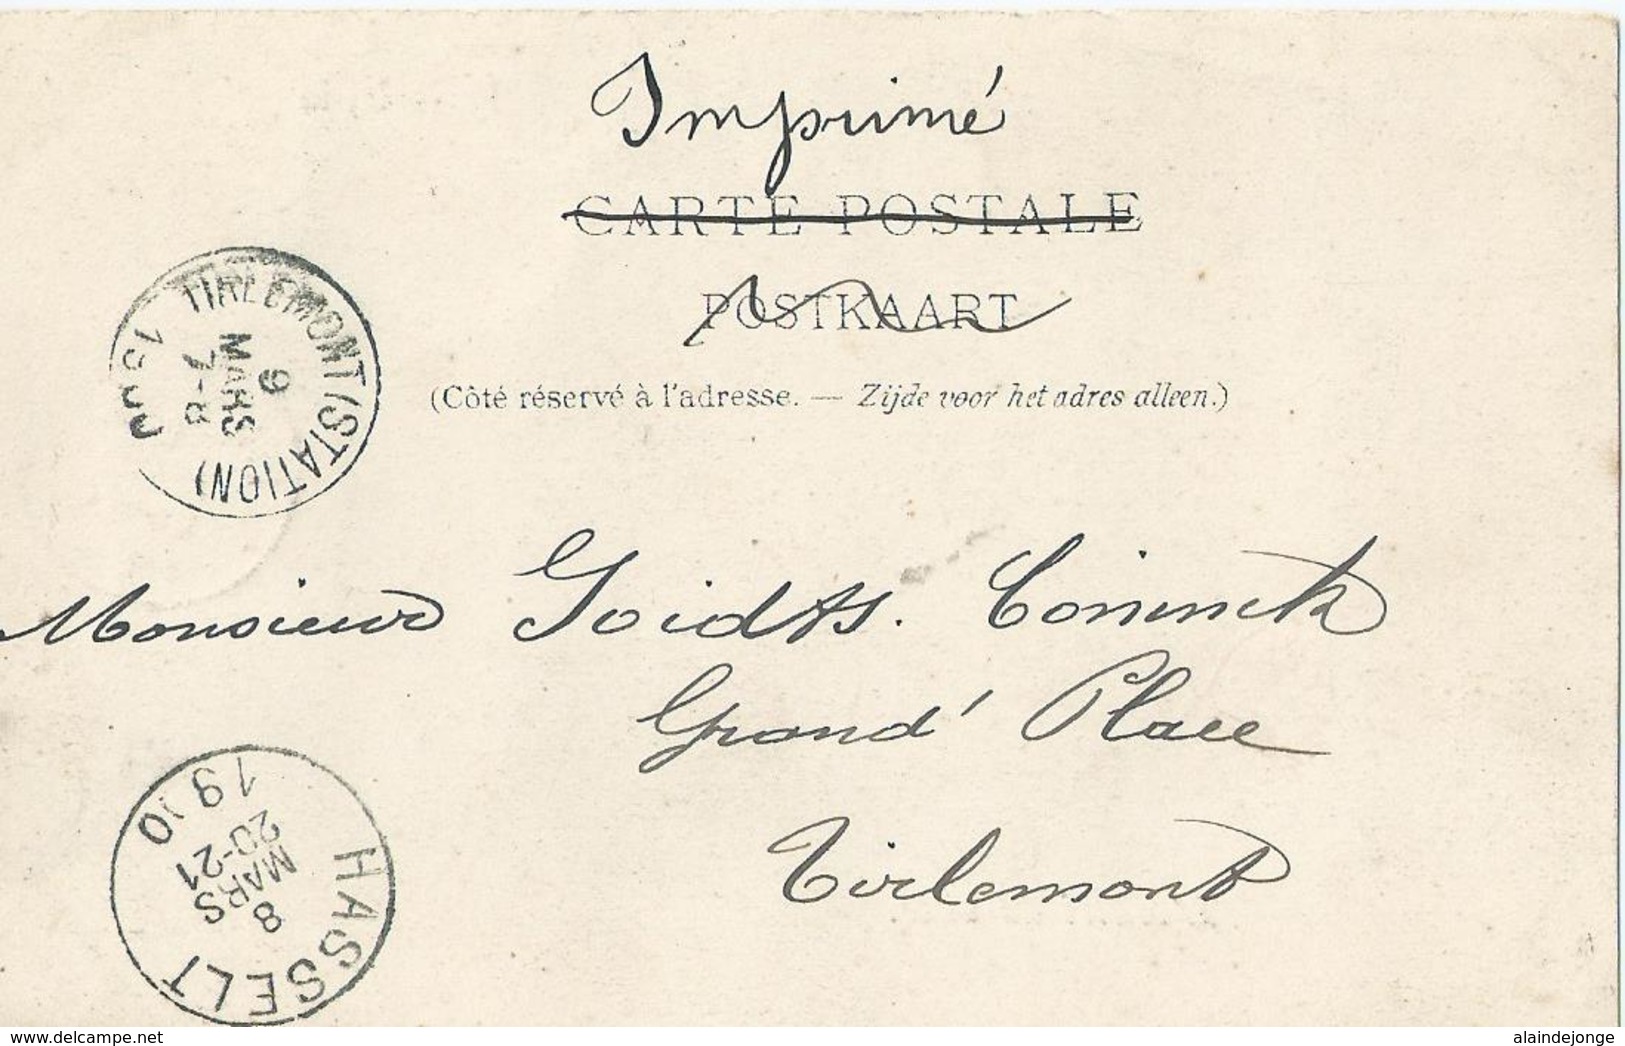 Imprimé
CARTE POSTALE
POSTKAART
(Côté réservé à l'adresse. — Zijde voor het adres alleen.)
TIRLEMONT (STATION)
9
MARS
7-8
Monsieur Goidts. Coninck
Grand' Place
Tirlemont
HASSELT
8
MARS
20-21
1900
www.delcampe.net
alaindejonge